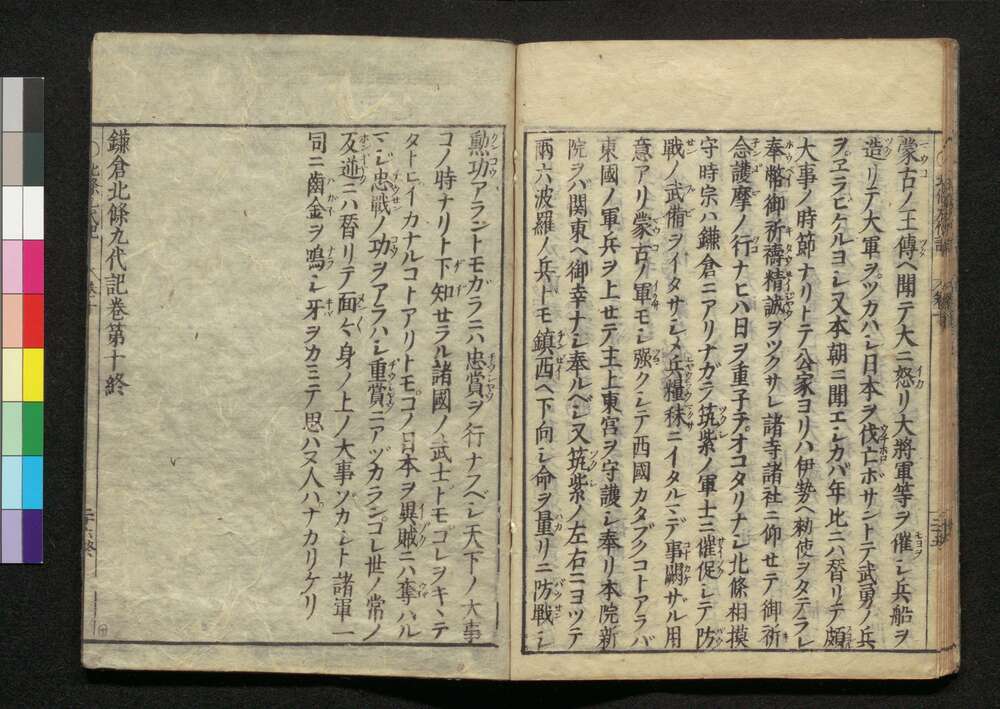 蒙古ノ王傳ヘ聞テ大ニ怒リ大將軍等ヲ催シ兵船ヲ
造リテ大軍ヲツカハシ日本ヲ伐亡ボサントテ武勇ノ兵
ヲヱラビケルヨシ又本朝ニ聞エシカバ年比ニハ替リテ頗
大事ノ時節ナリトテ公家ヨリハ伊勢ヘ勅使ヲタテラレ
奉幣御祈禱精誠ヲツクサレ諸寺諸社ニ仰セテ御祈
念護摩ノ行ナヒ八日ヲ重子テオコタリナシ北條相摸
守時宗ハ鎌倉ニアリナガラ筑紫ノ軍士ニ催促シテ防
戰ノ武俻ヲイタサシメ兵糧秣ニイタルマデ事闕ザル用
意アリ蒙古ノ軍モシ强クシテ西國カタブクコトアラバ
東國ノ軍兵ヲ上セテ主上東宮ヲ守護シ奉リ本院新
院ヲバ関東ヘ御幸ナシ奉ルベシ又筑紫ノ左右ニヨツテ
兩六波羅ノ兵ドモ鎮西ヘ下向シ命ヲ量リニ防戰シ
勲功アラントモガラニハ忠賞ヲ行ナスベシ天下ノ大事
コノ時ナリト下知せラル諸國ノ武士ドモコレヲキヽテ
タトヒイカナルコトアリトモコノ日本ヲ異賊ニハ奪ハル
マジ忠戰ノ功ヲアラハシ重賞ニアヅカランコレ世ノ常ノ
反逆ニハ替リテ面〻身ノ上ノ大事ゾカシト諸軍一
同ニ齒金ヲ鳴シ牙ヲカミテ思ハヌ人ハナカリケリ
鎌倉北條九代記巻第十終
二十六終